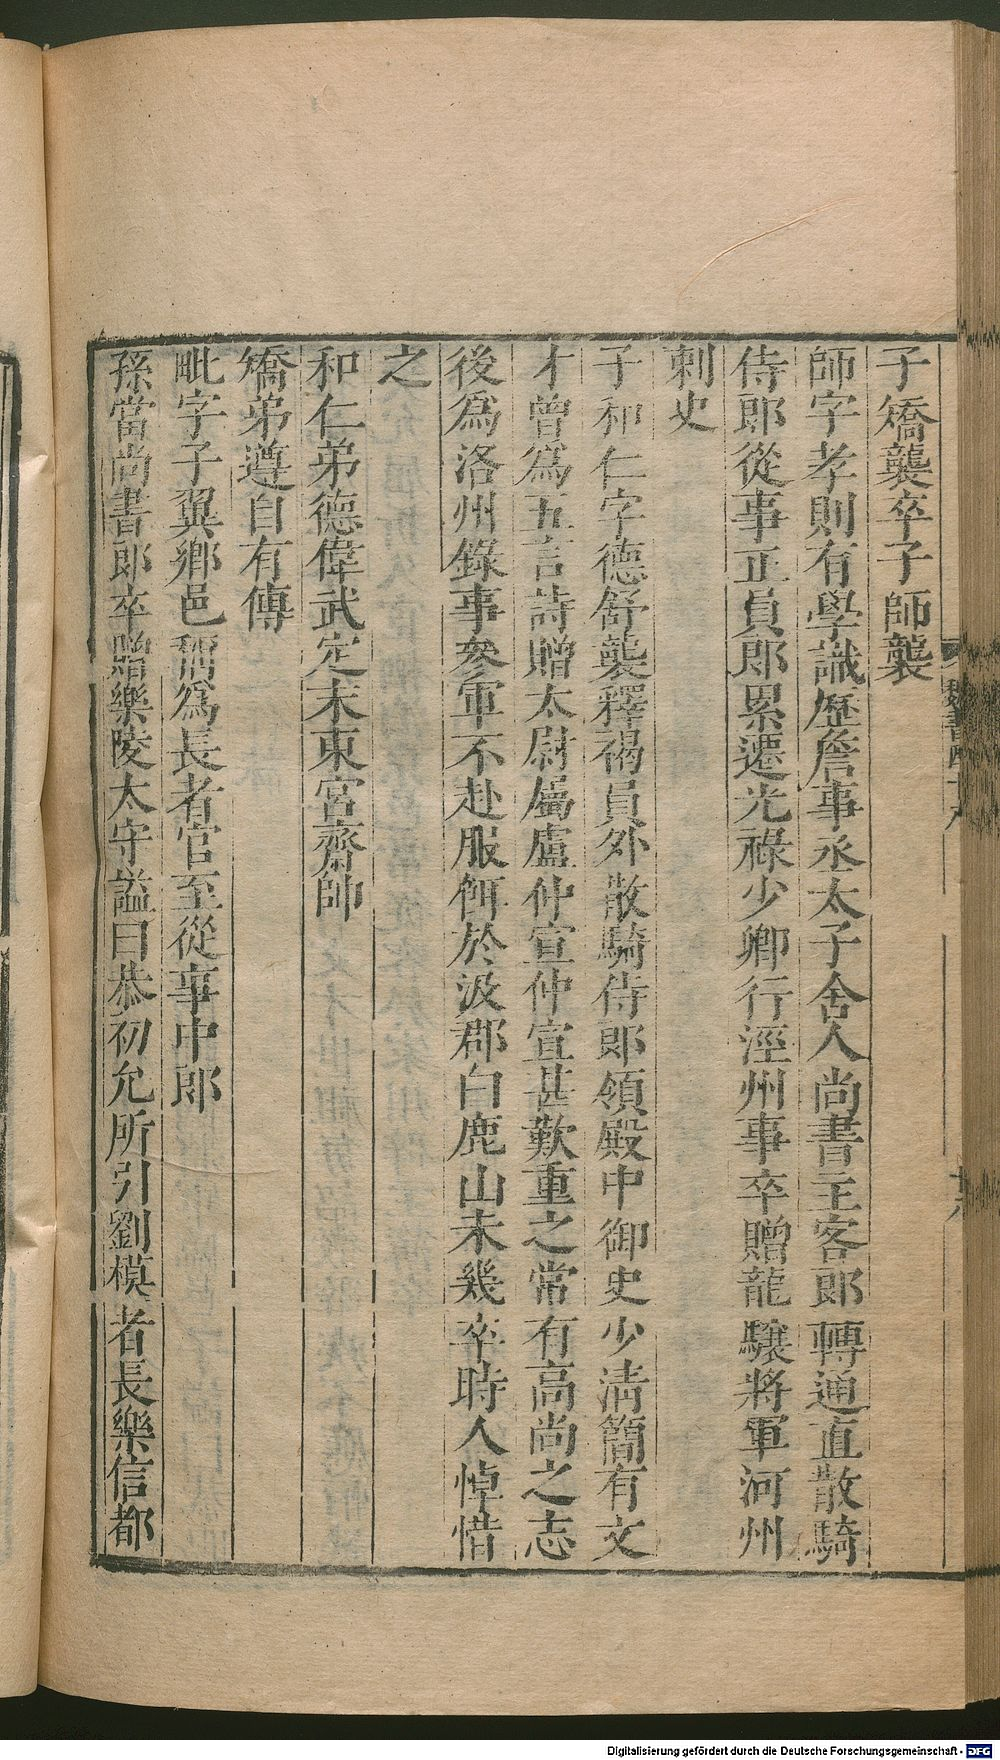 子矯襲卒子師襲
師字孝則有學識歷詹事丞太子舍人尚書主客郎轉通直散騎
侍郎從事正員郎累遷光祿少卿行涇州事卒贈龍驤將軍河州
刺史
子和仁字德舒襲釋褐員外散騎侍郎領殿中御史少清簡有文
才曾爲五言詩贈太尉屬盧仲宣仲宣甚歎重之常有高尚之志
後爲洛州錄事參軍不赴服餌於汲郡白鹿山未幾卒時人悼惜
之
和仁弟德偉武定末東宮齋帥
矯弟遵自有傳
毗字子翼鄉邑稱爲長者官至從事中郎
孫當尚書郎卒贈樂陵太守謚曰恭初允所引劉模者長樂信都
魏書四十八
廿八
Digitalisierung gefördert durch die Deutsche Forschungsgemeinschaft - DFG